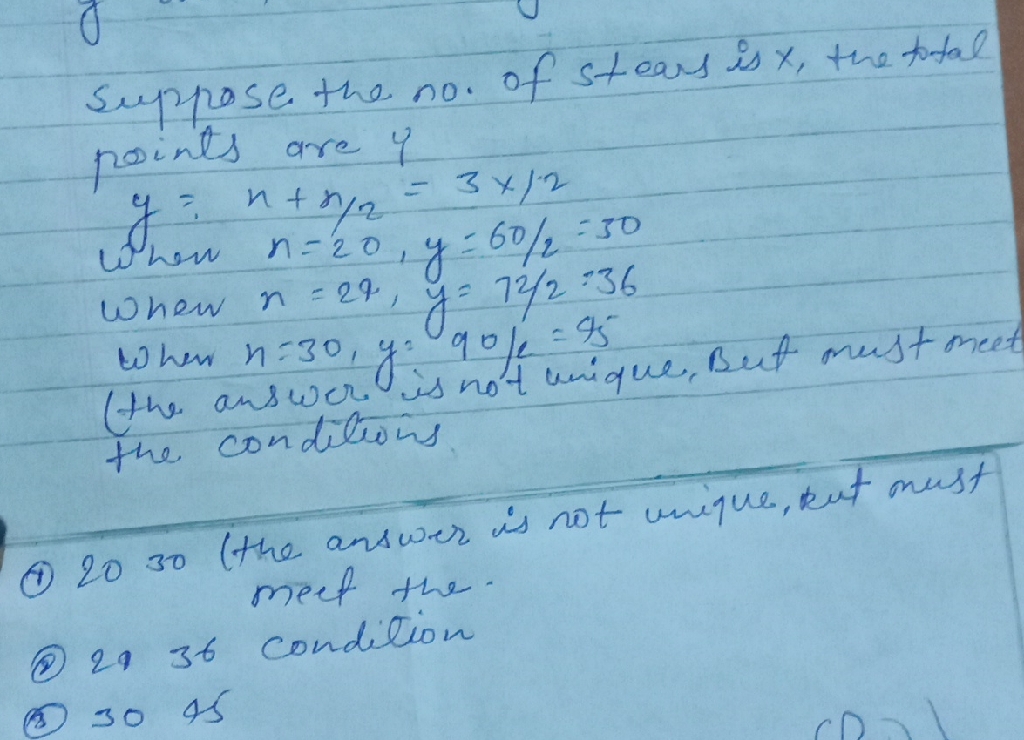 Suppose the no. of stears is x, the total
points are y
y = n + n/2 = 3x/2
When n=20, y=60/2=30
When n=24, y=72/2=36
When n=30, y=90/2=45
(the answer is not unique, But must meet
the conditions.
① 20 30 (the answer is not unique, but must
meet the.
② 24 36 condition
③ 30 45